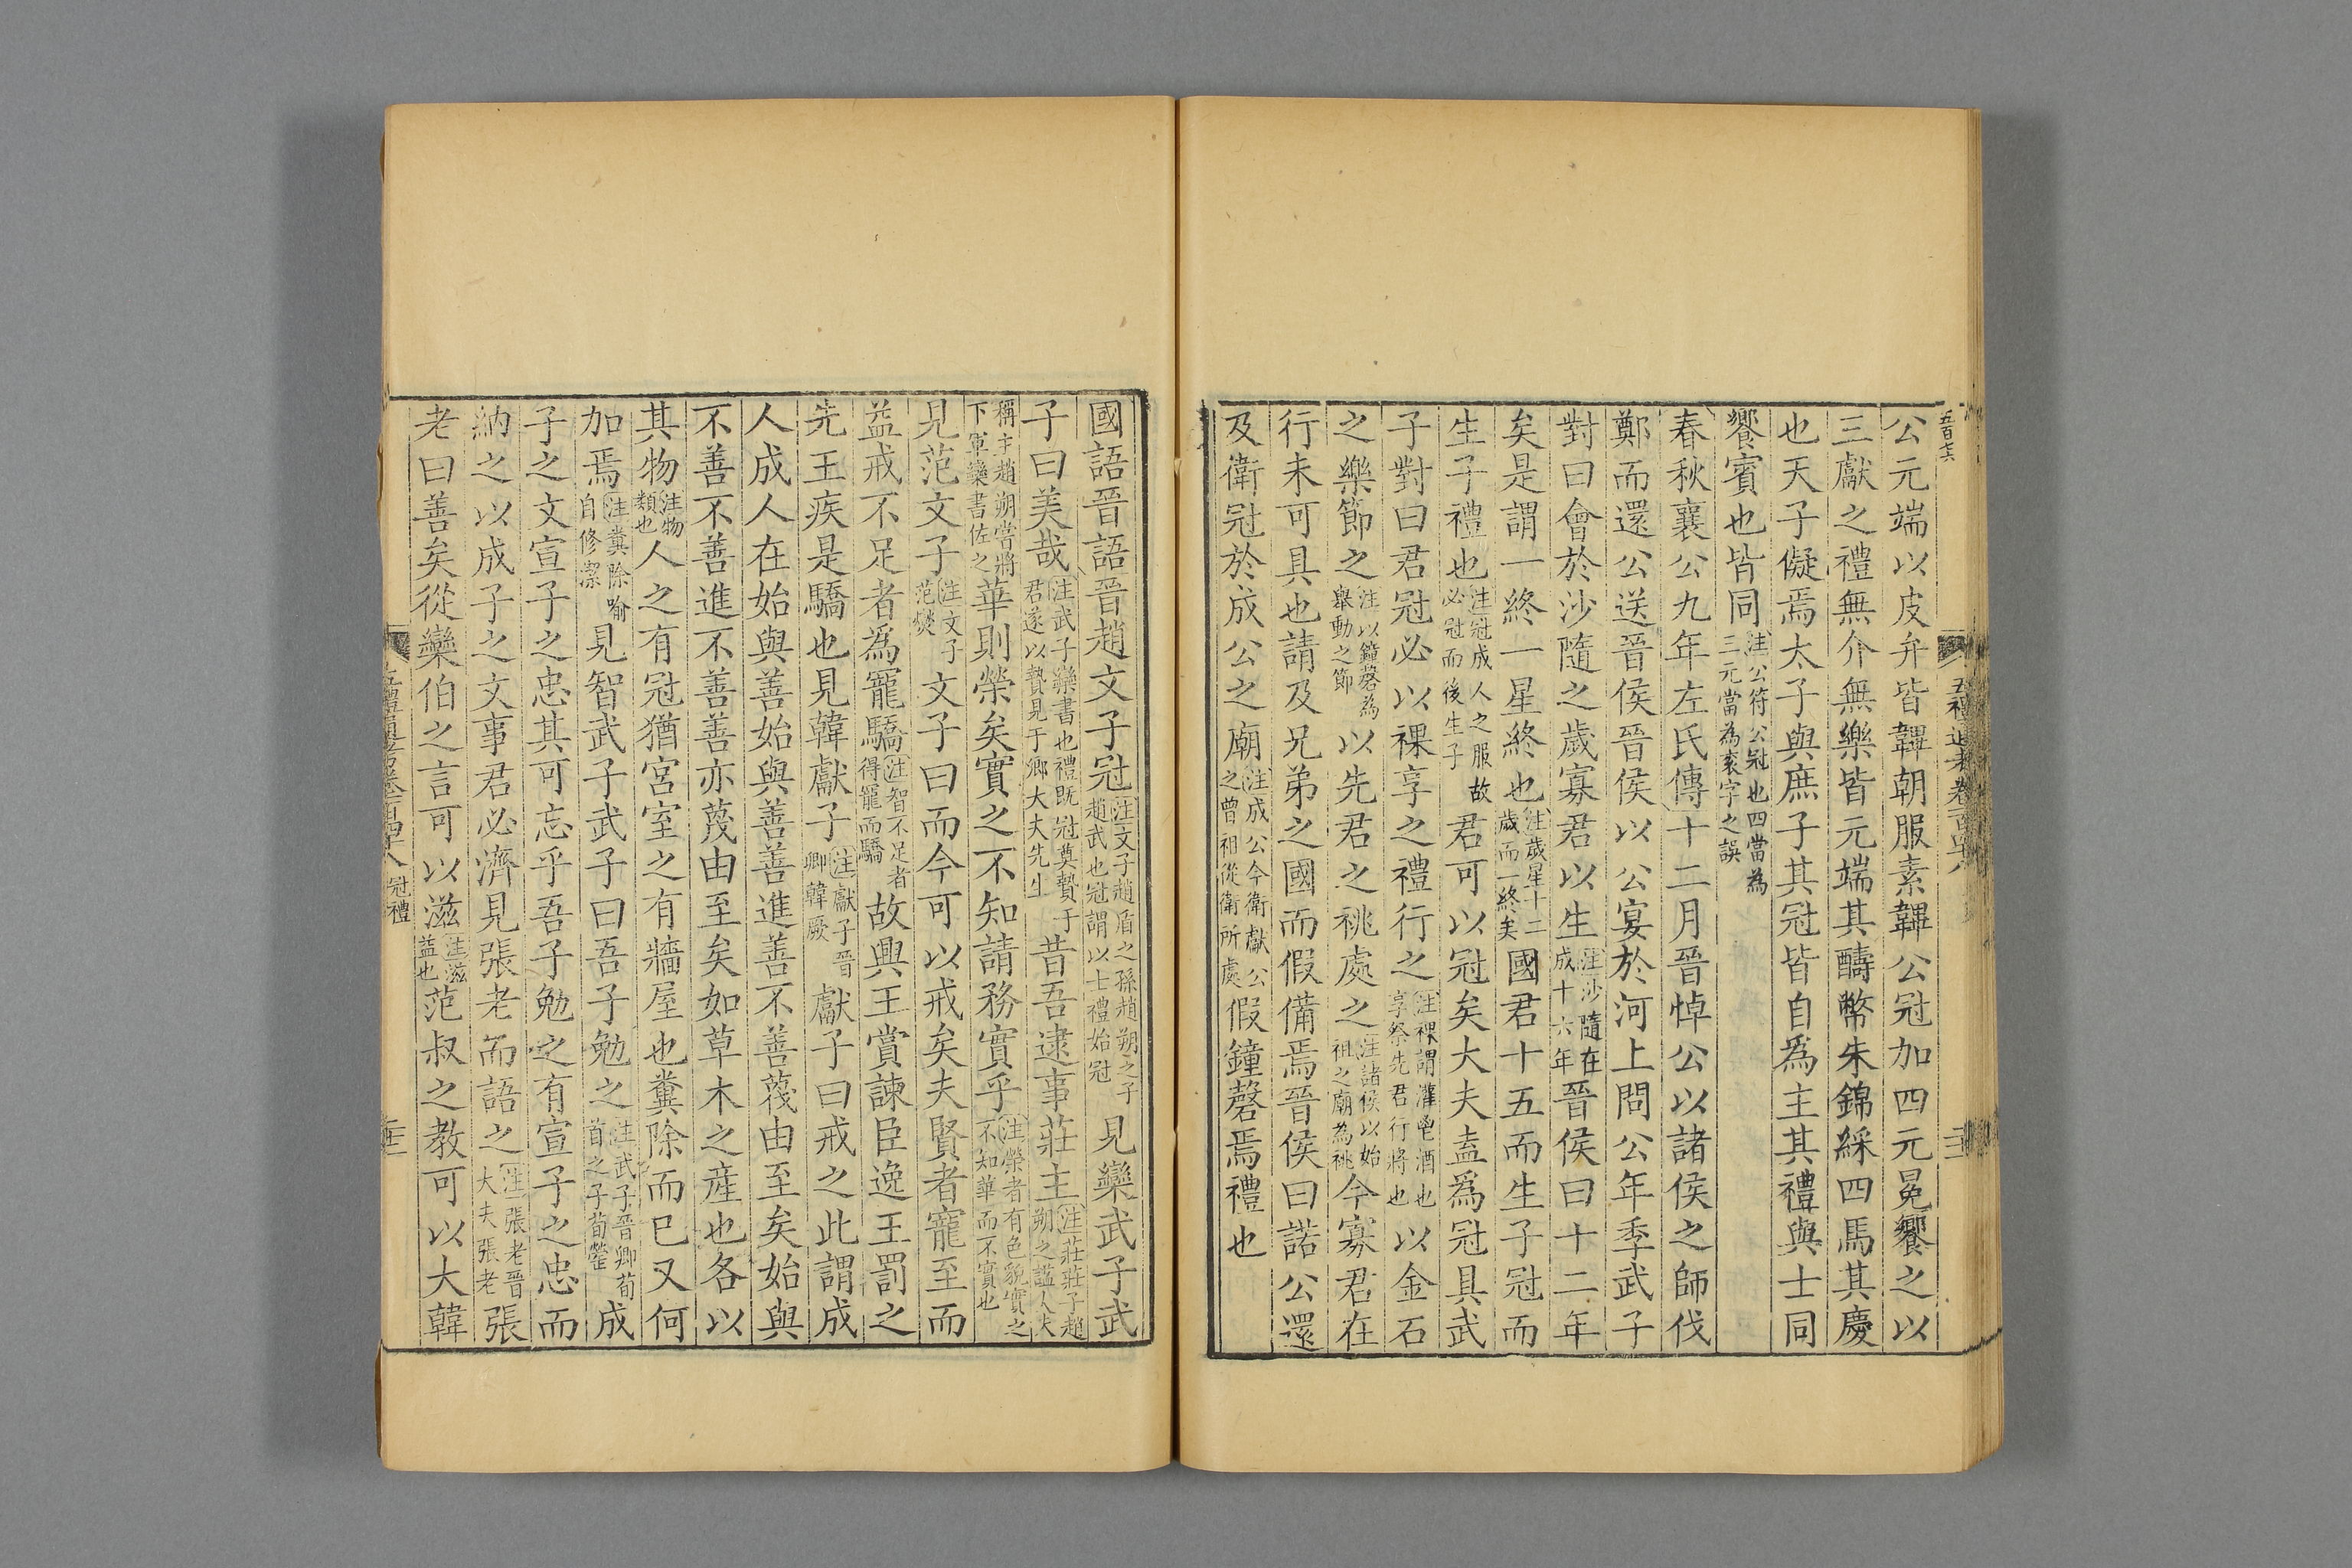 公元端以皮弁皆韠朝服素韠公冠加四元冕饗之以
三獻之禮無介無樂皆元端其醻幣朱錦綵四馬其慶
也天子儗焉太子與庶子其冠皆自爲主其禮與士同
饗賓也皆同注公符公冠也四當爲三元當爲袞字之誤
春秋襄公九年左氏傳十二月晉悼公以諸侯之師伐
鄭而還公送晉侯晉侯以公宴於河上問公年季武子
對曰會於沙隨之歲寡君以生注沙隨在成十六年晉侯曰十二年
矣是謂一終一星終也注歲星十二歲而一終矣國君十五而生子冠而
生子禮也注冠成人之服故必冠而後生子君可以冠矣大夫盍爲冠具武
子對曰君冠必以祼享之禮行之注祼謂灌鬯酒也享祭先君行將也以金石
之樂節之注以鐘磬為舉動之節以先君之祧處之注諸侯以始祖之廟為祧今寡君在
行未可具也請及兄弟之國而假備焉晉侯曰諾公還
及衛冠於成公之廟注成公今衛獻公之曾祖從衛所處假鐘磬焉禮也
國語晉語晉趙文子冠注文子趙盾之孫趙朔之子趙武也冠謂以士禮始冠見欒武子武
子曰美哉注武子欒書也禮既冠奠贄于君遂以贄見于卿大夫先生昔吾逮事莊主注莊莊子趙朔之謚人夫
稱主趙朔嘗將下軍欒書佐之華則榮矣實之不知請務實乎注榮者有色貌實之不知華而不實也
見范文子注文子范燮文子曰而今可以戒矣夫賢者寵至而
益戒不足者爲寵驕注智不足者得寵而驕故興王賞諫臣逸王罰之
先王疾是驕也見韓獻子注獻子晉卿韓厥獻子曰戒之此謂成
人成人在始與善始與善善進善不善蔑由至矣始與
不善不善進不善善亦蔑由至矣如草木之產也各以
其物注物類也人之有冠猶宮室之有牆屋也糞除而已又何
加焉注糞除喻自修潔見智武子武子曰吾子勉之注武子晉卿荀首之子荀罃成
子之文宣子之忠其可忘乎吾子勉之有宣子之忠而
納之以成子之文事君必濟見張老而語之注張老晉大夫張老張
老曰善矣從欒伯之言可以滋注滋益也范叔之教可以大韓
冠禮